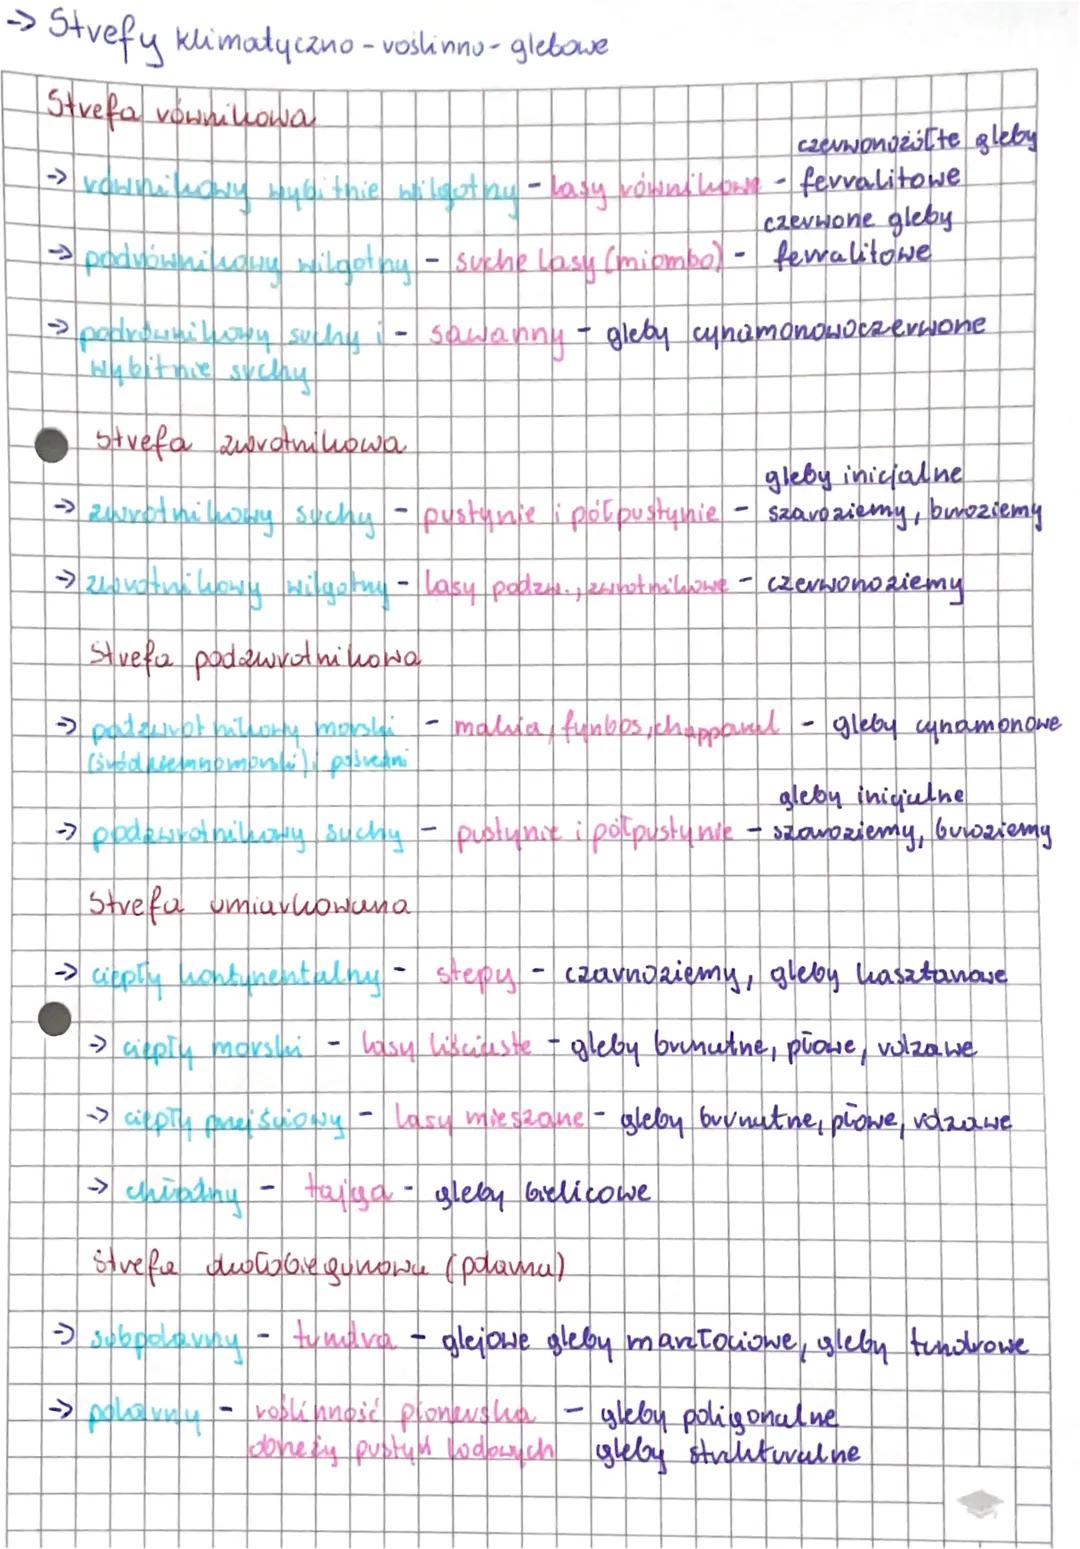 -> Strefy klimatyczno-roślinno-glebowe
Strefa równikowa
czerwonożółte gleby
-> równikowy wybitnie wilgotny - lasy równikowe - ferralitowe
czerwone gleby
-> podrównikowy wilgotny - suche lasy (miombo) - ferralitowe
-> podrównikowy suchy i - sawanny - gleby cynamonowoczerwone
wybitnie suchy
strefa zwrotnikowa
gleby inicjalne
-> zwrotnikowy suchy - pustynie i półpustynie - szaroziemy, buroziemy
-> zwrotnikowy wilgotny - lasy podzw., zwrotnikowe - czerwonoziemy
Strefa podzwrotnikowa
-> podzwrotnikowy morski - makia, fynbos, chapparal - gleby cynamonowe
(śródziemnomorski) i pośredni
gleby inicjalne
-> podzwrotnikowy suchy - pustynie i półpustynie - szaroziemy, buroziemy
Strefa umiarkowana
-> ciepły kontynentalny - stepy - czarnoziemy, gleby kasztanowe
-> ciepły morski - lasy liściaste - gleby brunatne, płowe, rdzawe
-> ciepły przejściowy - lasy mieszane - gleby brunatne, płowe, rdzawe
-> chłodny - tajga - gleby bielicowe
Strefa okołobiegunowa (polarna)
-> subpolarny - tundra - glejowe gleby marzłociowe, gleby tundrowe
-> polarny - roślinność pionierska - gleby poligonalne
obrzeży pustyń lodowych gleby strukturalne